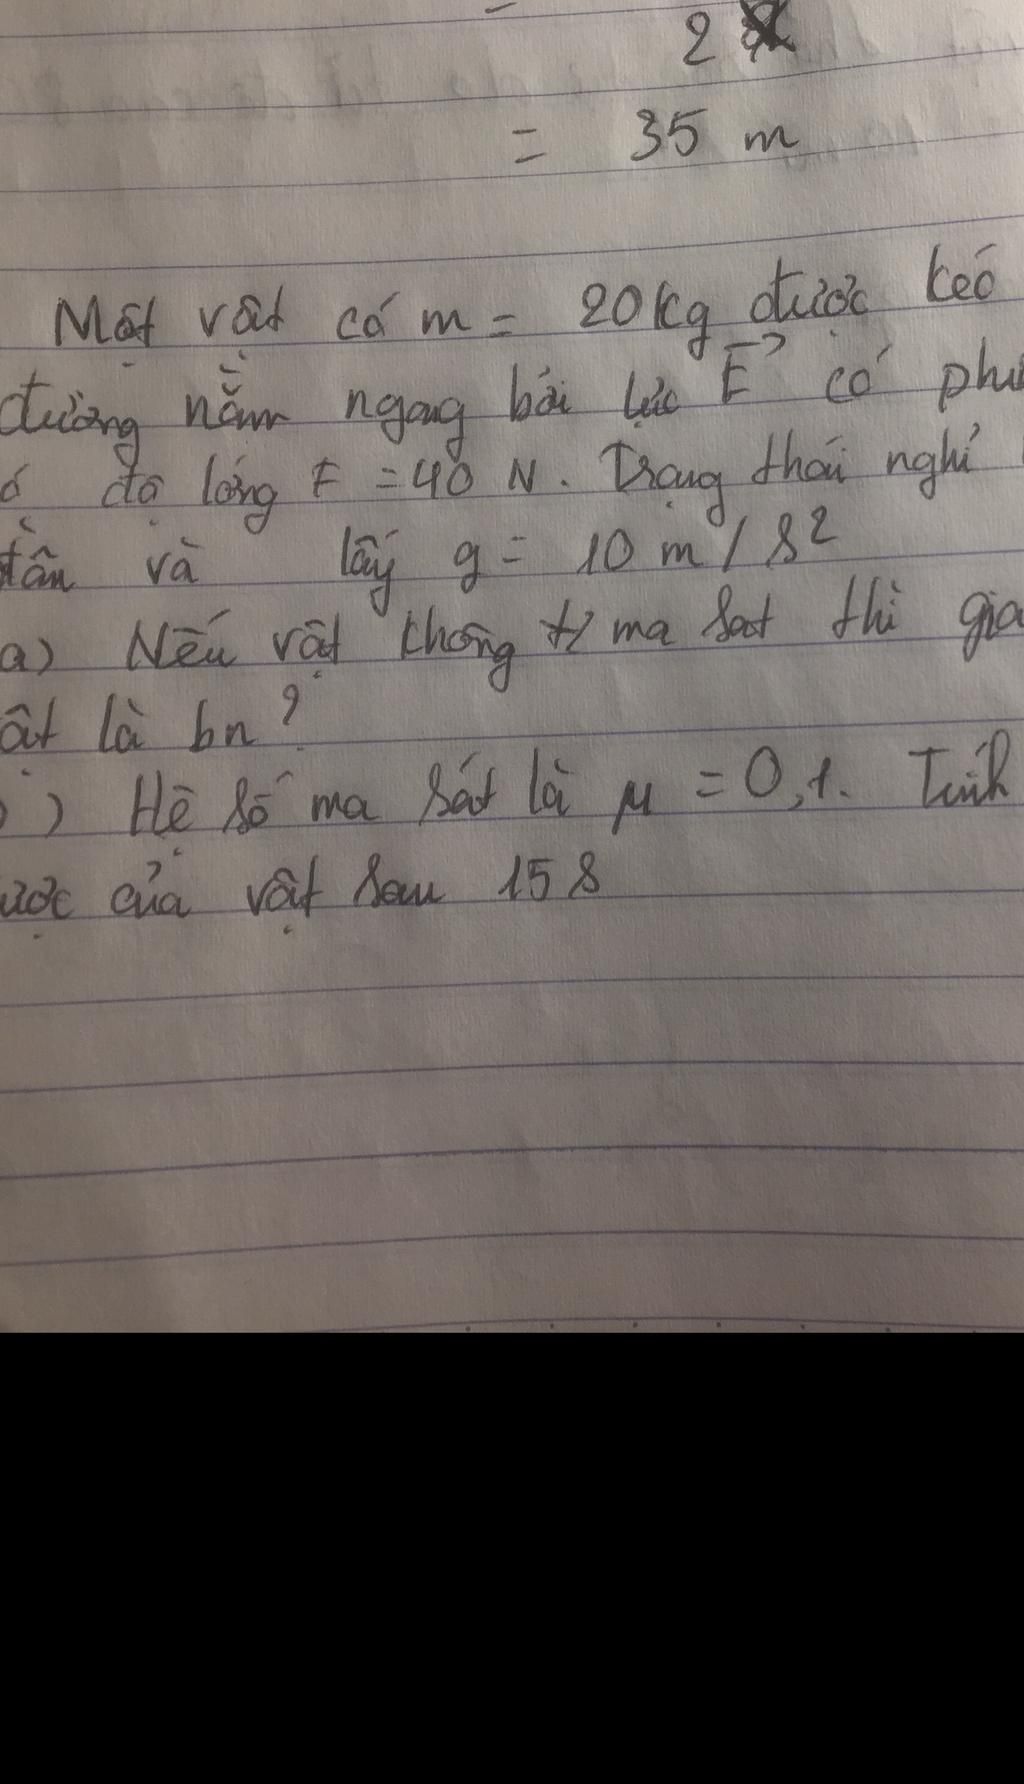 2
= 35 m
Một vật có m = 20kg được kéo
đường nằm ngang bởi lực F có phư
ó độ lớng F = 40 N. Trạng thái nghỉ
đần và lấy g = 10 m/s2
a) Nếu vật không t/ ma sat thì gia
ật là bn?
) Hệ số ma sát là μ = 0,1. Tính
ược của vật sau 15 s